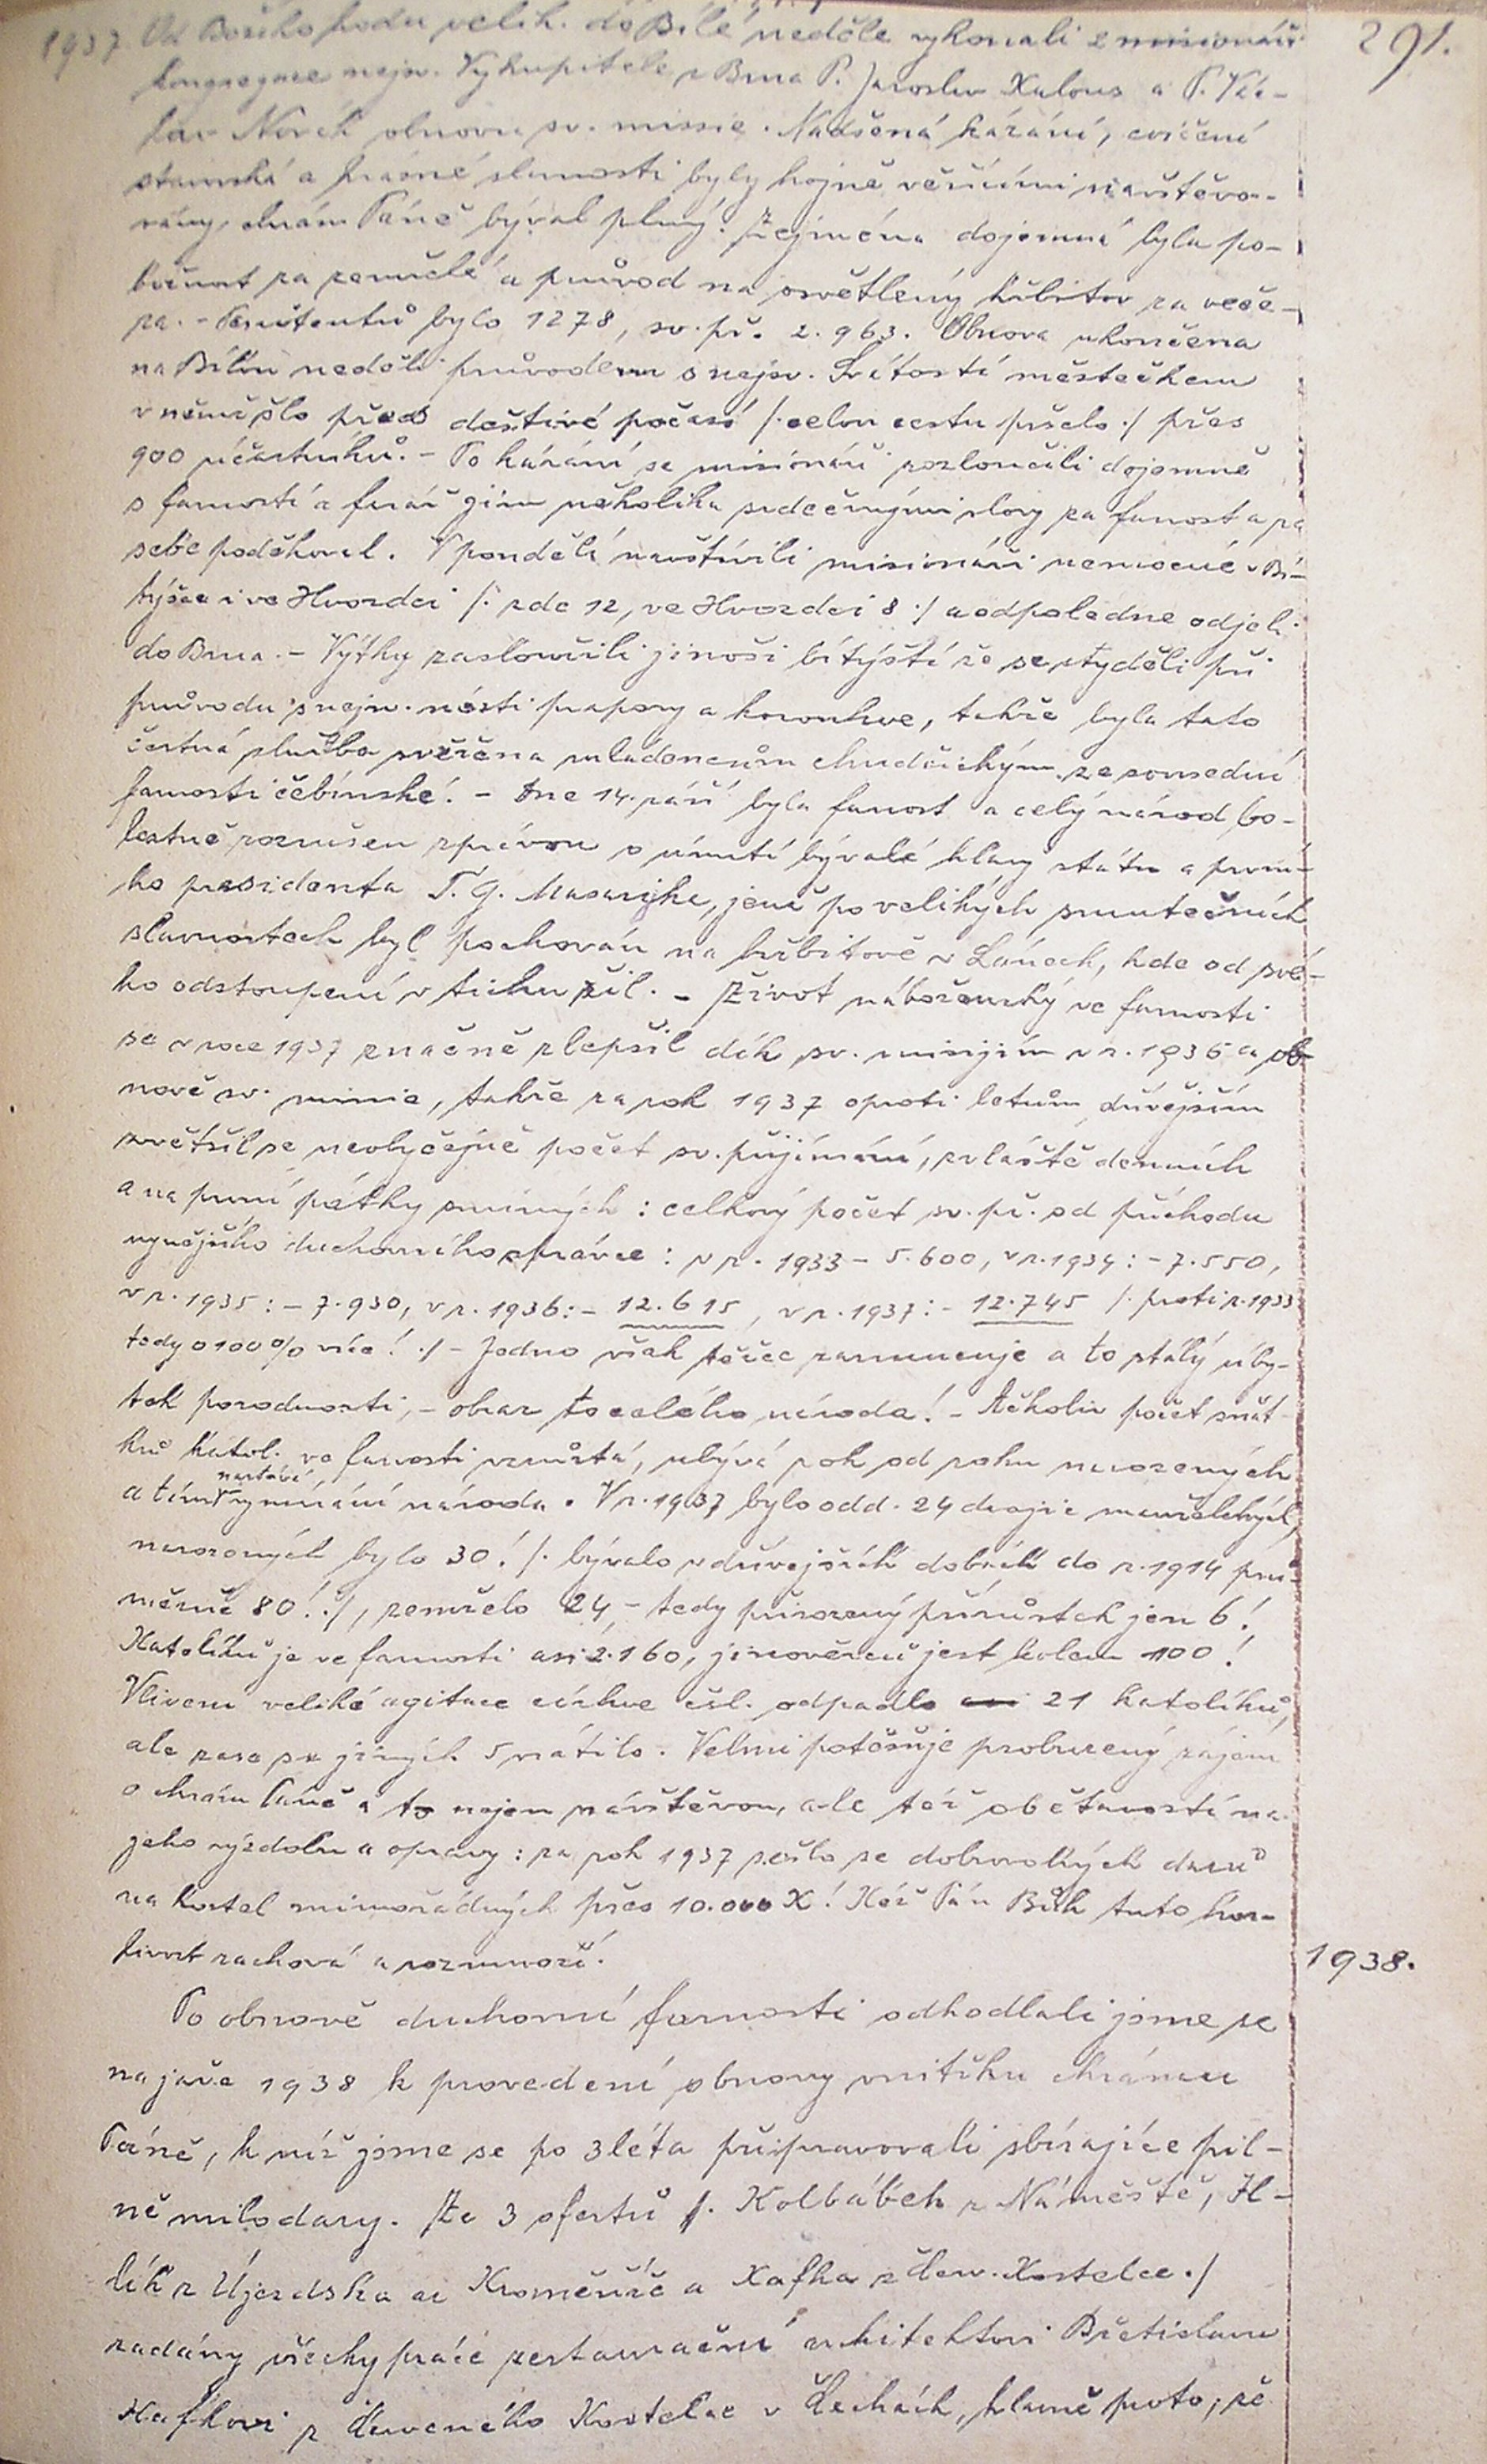 291.
1937 Od Božího hodu velik. do Bílé neděle vykonali 2 misionáři
kongregace nejsv. Vykupitele z Brna P. Jaroslav Kalous a P. Vác-
lav Novák obnovu sv. missie. Nadšená kázání, cvičení
stavovská a krásné slavnosti byly hojně věřícími navštěvo-
vány, chrám Páně býval plný. Zejména dojemná byla po-
božnost za zemřelé a průvod na osvětlený hřbitov za veče-
ra. - Penitentů bylo 1278, sv. př. 2.963. Obnova ukončena
na Bílou neděli průvodem s nejsv. Svátostí městečkem
v němž šlo přes deštivé počasí /: celou cestu pršelo :/ přes
900 účastníků. - Po kázání se misionáři rozloučili dojemně
s farností a farář jim několika srdečnými slovy za farnost a za
sebe poděkoval. V pondělí navštívili misionáři nemocné v Bí-
týšce i ve Hvozdci /: zde 12, ve Hvozdci 8 :/ a odpoledne odjeli
do Brna. - Výtky zasloužili jinoši bítýští že se styděli při
průvodu s nejsv. nésti prapory a korouhve, takže byla tato
čestná služba svěřena mládencům chudčickým ze sousední
farnosti čebínské. - Dne 14. září byla farnost a celý národ bo-
lestně rozrušen zprávou o úmrtí bývalé hlavy státu a první-
ho presidenta T. G. Masaryka, jenž po velikých smutečních
slavnostech byl pochován na hřbitově v Lánech, kde od své-
ho odstoupení v tichu žil. - Život náboženský ve farnosti
se v roce 1937 značně zlepšil dík sv. misijím v r. 1936 a ob-
nově sv. misie, takže za rok 1937 oproti letům dřívějším
zvětšil se neobyčejně počet sv. přijímání, zvláště denních
a na první pátky smírných: celkový počet sv. př. od příchodu
nynějšího duchovního správce: v r. 1933 - 5.600, v r. 1934: - 7.550,
v r. 1935: - 7.930, v r. 1936: - 12.615, v r. 1937: - 12.745 /: proti r. 1933
tedy o 100% více! :/ - Jedno však těžce zarmucuje a to stálý úby-
tek porodnosti, - obraz to celého národa! - Ačkoliv počet sňat-
ků katol. ve farnosti vzrůstá, ubývá rok od roku narozených
a tím nastává vymírání národa. V r. 1937 bylo odd. 24 dvojic manželských,
narozených bylo 30! /: bývalo v dřívějších dobách do r. 1914 prů-
měrně 80! :/, zemřelo 24 - tedy přirozený přírůstek jen 6!
Katolíků je ve farnosti asi 2.160, jinověrců jest kolem 100!
Vlivem veliké agitace církve čsl. odpadlo asi 21 katolíků,
ale zase se jiných 5 vrátilo. Velmi potěšuje probuzený zájem
o chrám Páně a to nejen návštěvou, ale též obětavostí na
jeho výzdobu a opravy: za rok 1937 sešlo se dobrovolných darů
na kostel mimořádných přes 10.000 K! Kéž Pán Bůh tuto hor-
livost zachová a rozmnoží.
1938.
Po obnově duchovní farnosti odhodlali jsme se
na jaře 1938 k provedení obnovy vnitřku chrámu
Páně, k níž jsme se po 3 léta připravovali sbírajíce pil-
ně milodary. Ze 3 ofertů /: Kolbábek z Náměště, Hl-
lík z Újezdska au Kroměříže a Kafka z Červ. Kostelce :/
zadány všechy práce restaurační architektovi Břetislavu
Kafkovi z Červeného Kostelce v Čechách, hlavně proto, že